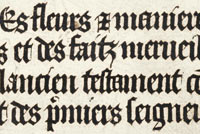 Es fleurs ⁊ maniere
s et des faitz merueil
lancien testament cõ
t des p̃miers seigneu